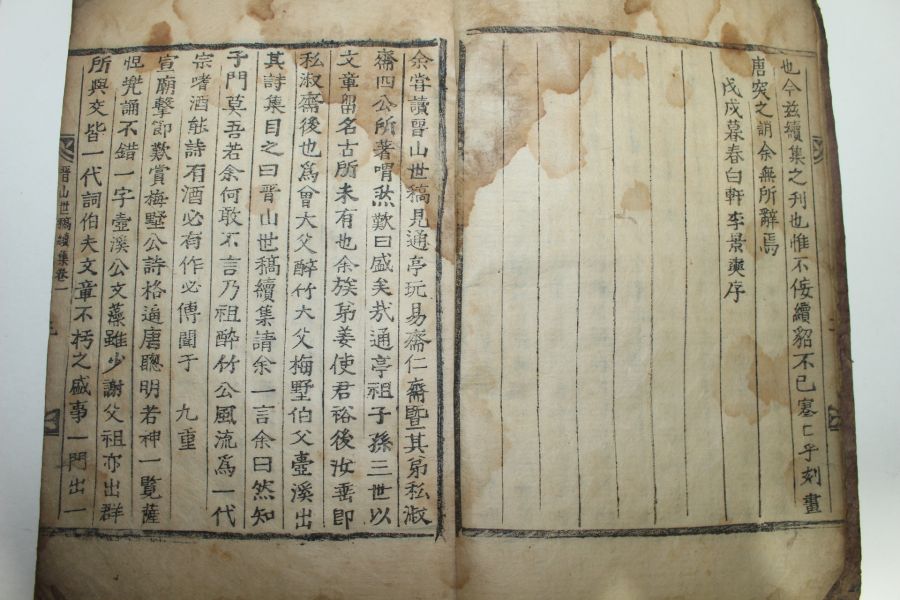 也今玆續集之刊也惟不侫續貂不已塞亡乎刻畫
唐突之誚余無所辭焉
戊戌暮春白軒李景奭序
余嘗讀晋山世稿見通亭玩易齋仁齋曁其弟私淑
齋四公所著喟然歎曰盛矣哉通亭祖子孫三世以
文章留名古所未有也余族弟姜使君裕後汝垂即
私淑齋後也爲曾大父醉竹大父梅墅伯父壺溪出
其詩集目之曰晋山世稿續集請余一言余曰然知
子門莫吾若余何敢不言乃祖醉竹公風流爲一代
宗嗜酒能詩有酒必有作必傳聞于 九重
宣廟擊節歎賞梅墅公詩格逼唐聰明若神一覽薩
怛兠誦不錯一字壺溪公文藻雖少謝父祖亦出群
所與交皆一代詞伯夫文章不朽之盛事一門出一
晋山世稿續集卷一